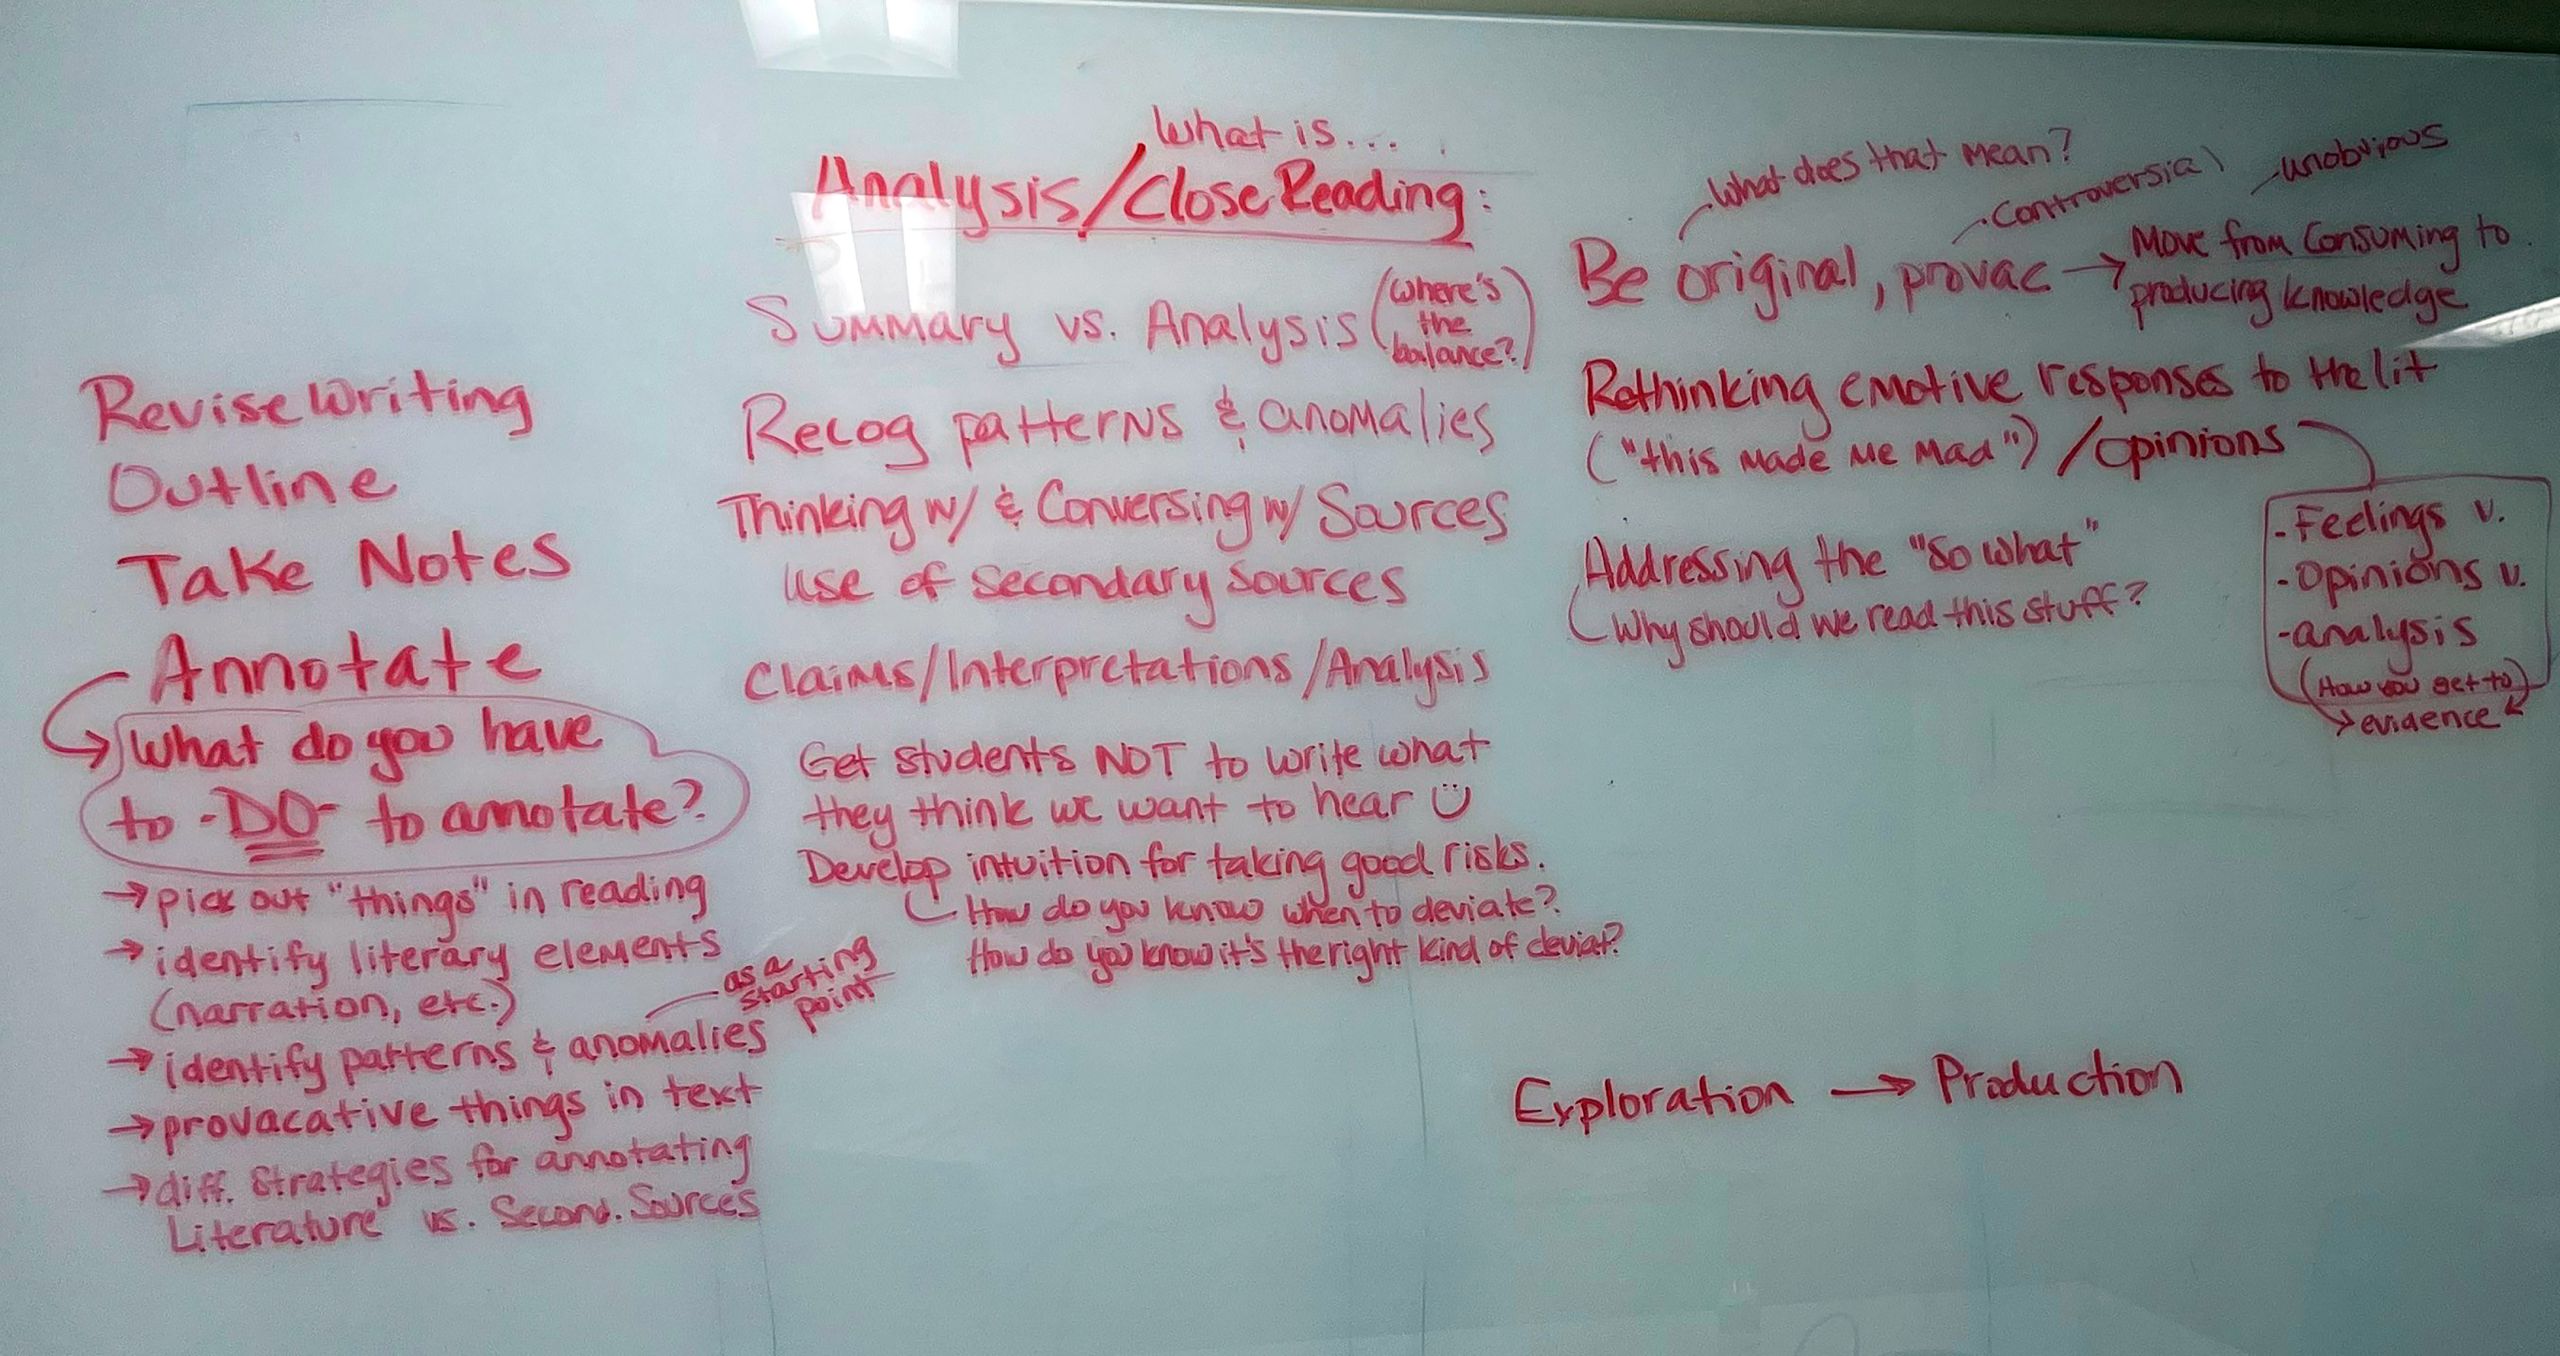 What is...
Analysis/Close Reading:
Revise Writing
Outline
Take Notes
Annotate
What do you have
to -DO- to annotate?
→ pick out "things" in reading
→ identify literary elements
(narration, etc.)
→ identify patterns & anomalies
as a
starting
point
→ provacative things in text
→ diff. Strategies for annotating
Literature vs. Second. Sources
Summary vs. Analysis (where's
the
balance?)
Recog patterns & anomalies
Thinking w/ & Conversing w/ Sources
Use of Secondary Sources
Claims/Interpretations/Analysis
Get students NOT to write what
they think we want to hear
Develop intuition for taking good risks.
How do you know when to deviate?
How do you know it's the right kind of deviat?
What does that mean?
controversial
unobvious
Be original, provac → Move from Consuming to
producing knowledge
Rethinking emotive responses to the lit
("this made me mad") /opinions
- Feelings v.
- Opinions v.
- analysis
(How you get to)
→ evidence
Addressing the "so what"
Why should we read this stuff?
Exploration → Production